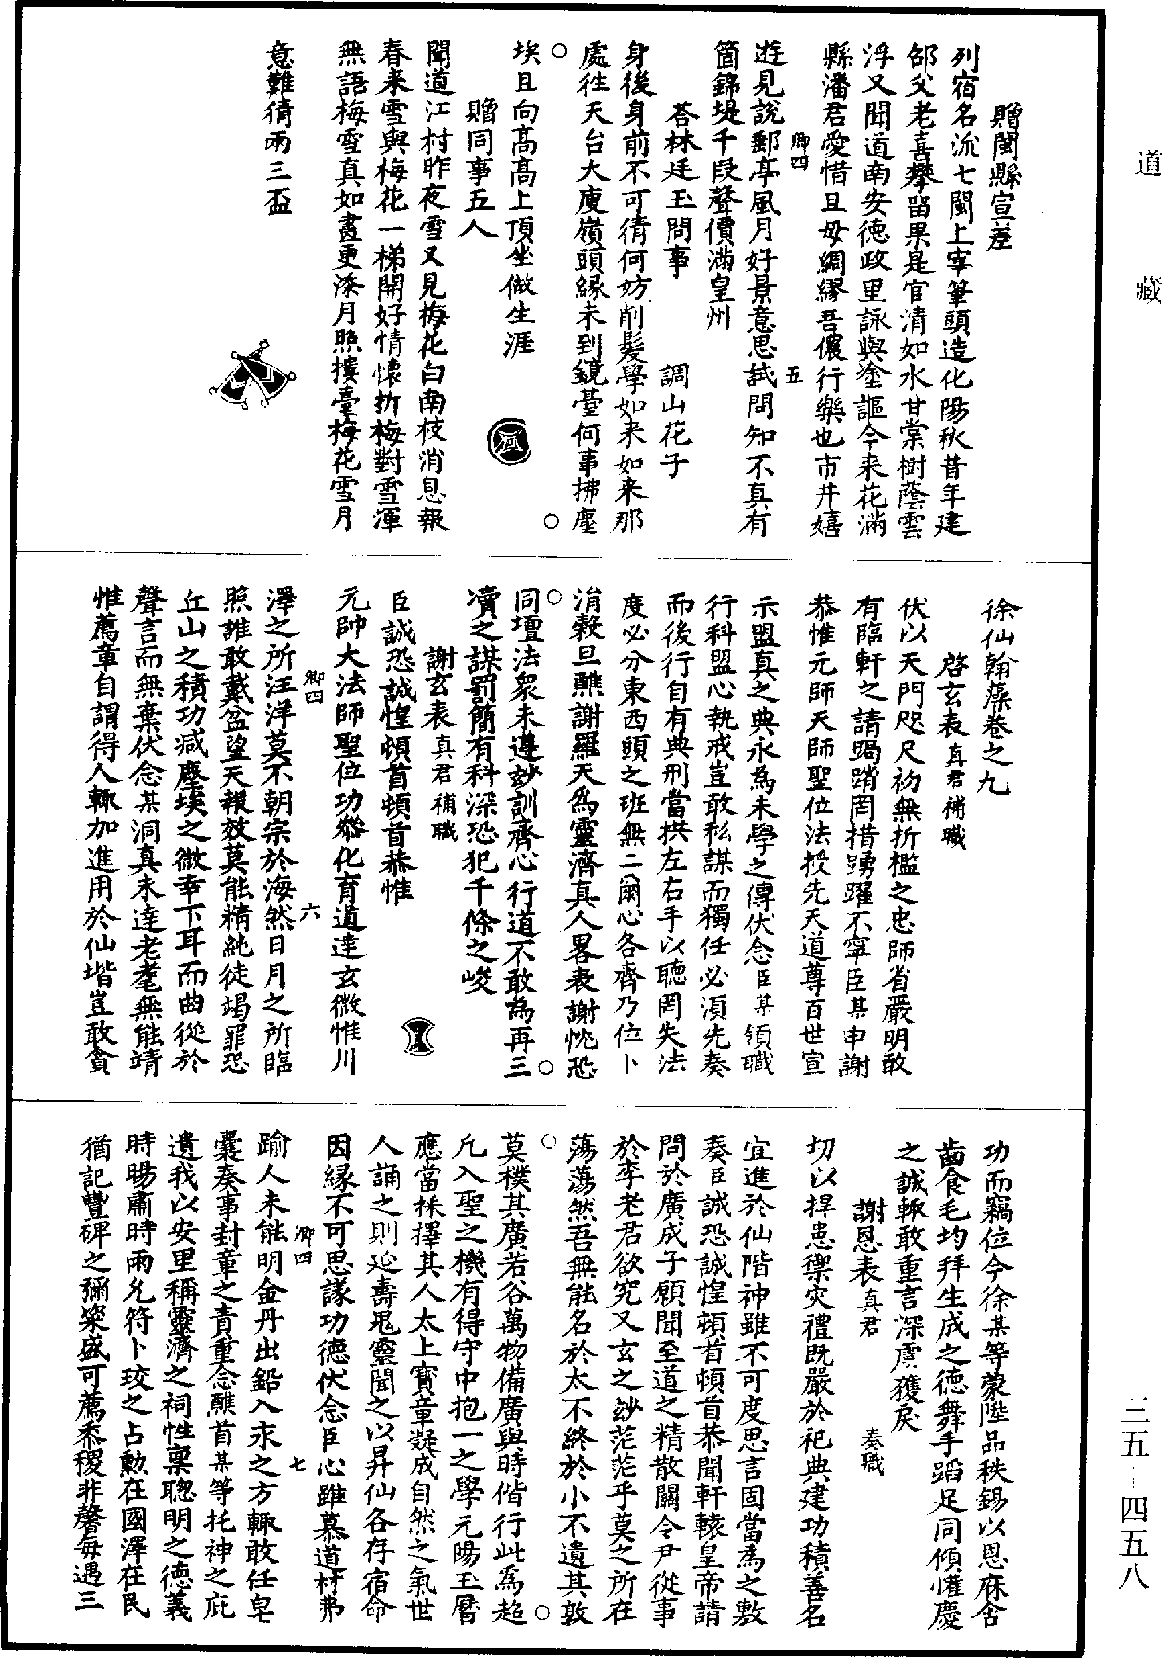 道藏
贈閩縣宣差
列宿名流七閩上宰筆頭造化陽秋昔年建
邵父老喜攀留果是官清如水甘棠樹蔭雲
浮又聞道南安德政里詠與塗謳今來花滿
縣潘君愛惜且毋綢繆吾儂行樂也市井嬉
卿四
五
遊見說郵亭風月好景意思試問知不真有
箇錦堤千段聲價滿皇州
荅林廷玉問事　調山花子
身後身前不可猜何妨削髮學如來如來那
處徃天台大庾嶺頭緣未到鏡臺何事拂塵
埃且向高高上頂坐做生涯
贈同事五人
聞道江村昨夜雪又見梅花白南枝消息報
春來雪與梅花一梯開好情懷折梅對雪渾
無語梅雪真如畫更添月照摟臺梅花雪月
意難倩兩三盃
徐仙翰藻卷之九
啓玄表真君補職
伏以天門咫尺初無折檻之忠師省嚴明敢
有臨軒之請跼蹐罔措踴躍不寧臣某申謝
恭惟元師天師聖位法授先天道尊百世宣
示盟真之典永為未學之傳伏念臣某領職
行科盟心執戒豈敢私謀而獨任必湏先奏
而後行自有典刑當拱左右手以聽罔失法
度必分東西頭之班無二爾心各齊乃位卜
㳙榖旦醮謝羅天為靈濟真人畧表謝忱恐
同壇法衆未遵玅訓齊心行道不敢為再三
凟之謀罰簡有科深恐犯千條之峻
謝玄表真君補職
臣誠恐誠惶頓首頓首恭惟
元帥大法師聖位功叅化育道逹玄微惟川
卿四
六
澤之所汪洋莫不朝宗於海然日月之所臨
照誰敢戴盆望天報效莫能精純徒竭罪恐
丘山之積功減塵埃之微幸下耳而曲從於
聲言而無棄伏念某洞真未逹老耄無能靖
惟薦章自謂得人輙加進用於仙堦豈敢貪
功而竊位今徐某等蒙陞品秩錫以恩庥含
齒食毛均拜生成之德舞手蹈足同傾懽慶
之誠輙敢重言深虞獲戾
謝恩表真君　奏職
切以捍患禦灾禮既嚴於祀典建功積善名
宜進於仙階神雖不可度思言固當為之敷
奏臣誠恐誠惶頓首頓首恭聞軒轅皇帝請
問於廣成子願聞至道之精散關令尹從事
於李老君欲究又玄之玅茫茫乎莫之所在
蕩蕩然吾無能名於太不終於小不遺其敦
莫樸其廣若谷萬物備廣與時偕行此為超
凡入聖之機有得守中抱一之學元陽玉曆
應當採擇其人太上寶章凝成自然之氣世
人誦之則延壽鬼靈聞之以昇仙各存宿命
因緣不可思議功德伏念臣心雖慕道材弗
卿四
七
踰人未能明金丹出鉛入汞之方輙敢任皂
囊奏事封章之責重念醮首某等托神之庇
遺我以安里稱靈濟之祠性稟聰明之德義
時暘肅時雨允符卜珓之占勲在國澤在民
猶記豐碑之彌粢盛可薦黍稷非馨每遇三
三五—四五八